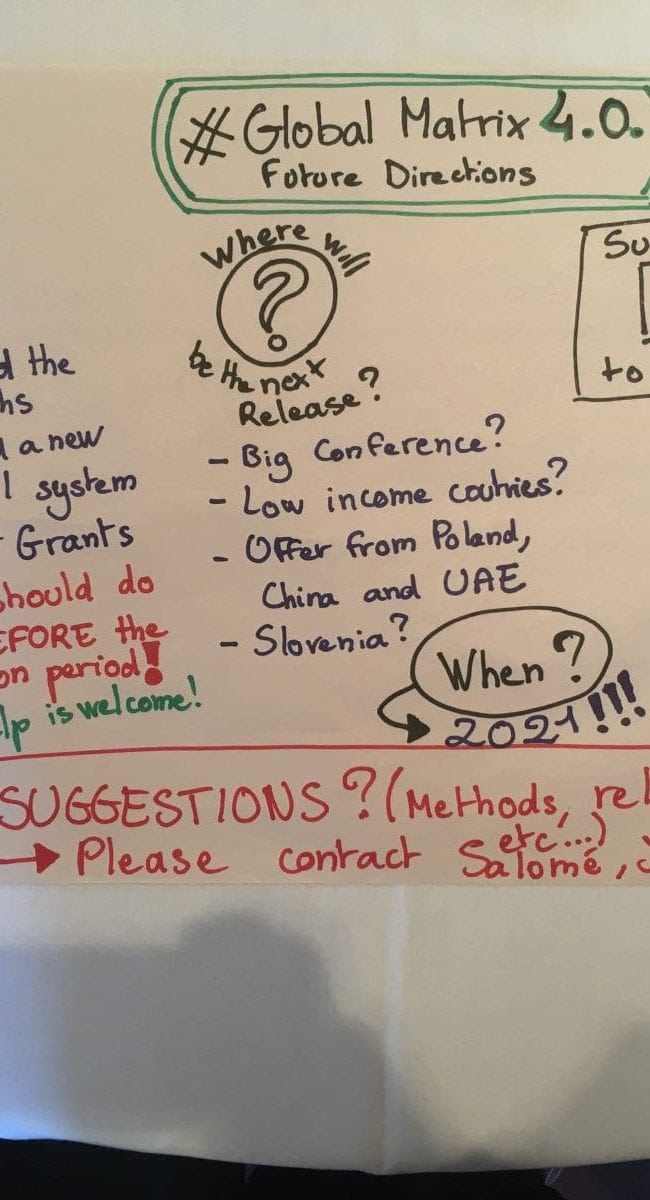 # Global Matrix 4.0.
Future Directions
Where will
?
be the next
Release?
- Big Conference?
- Low income coutries?
- Offer from Poland,
China and UAE
- Slovenia?
When?
2021!!!
the
a new
system
Grants
should do
BEFORE the
period!
is welcome!
to
SUGGESTIONS? (Methods,
etc...)
→ Please contact Salomé,